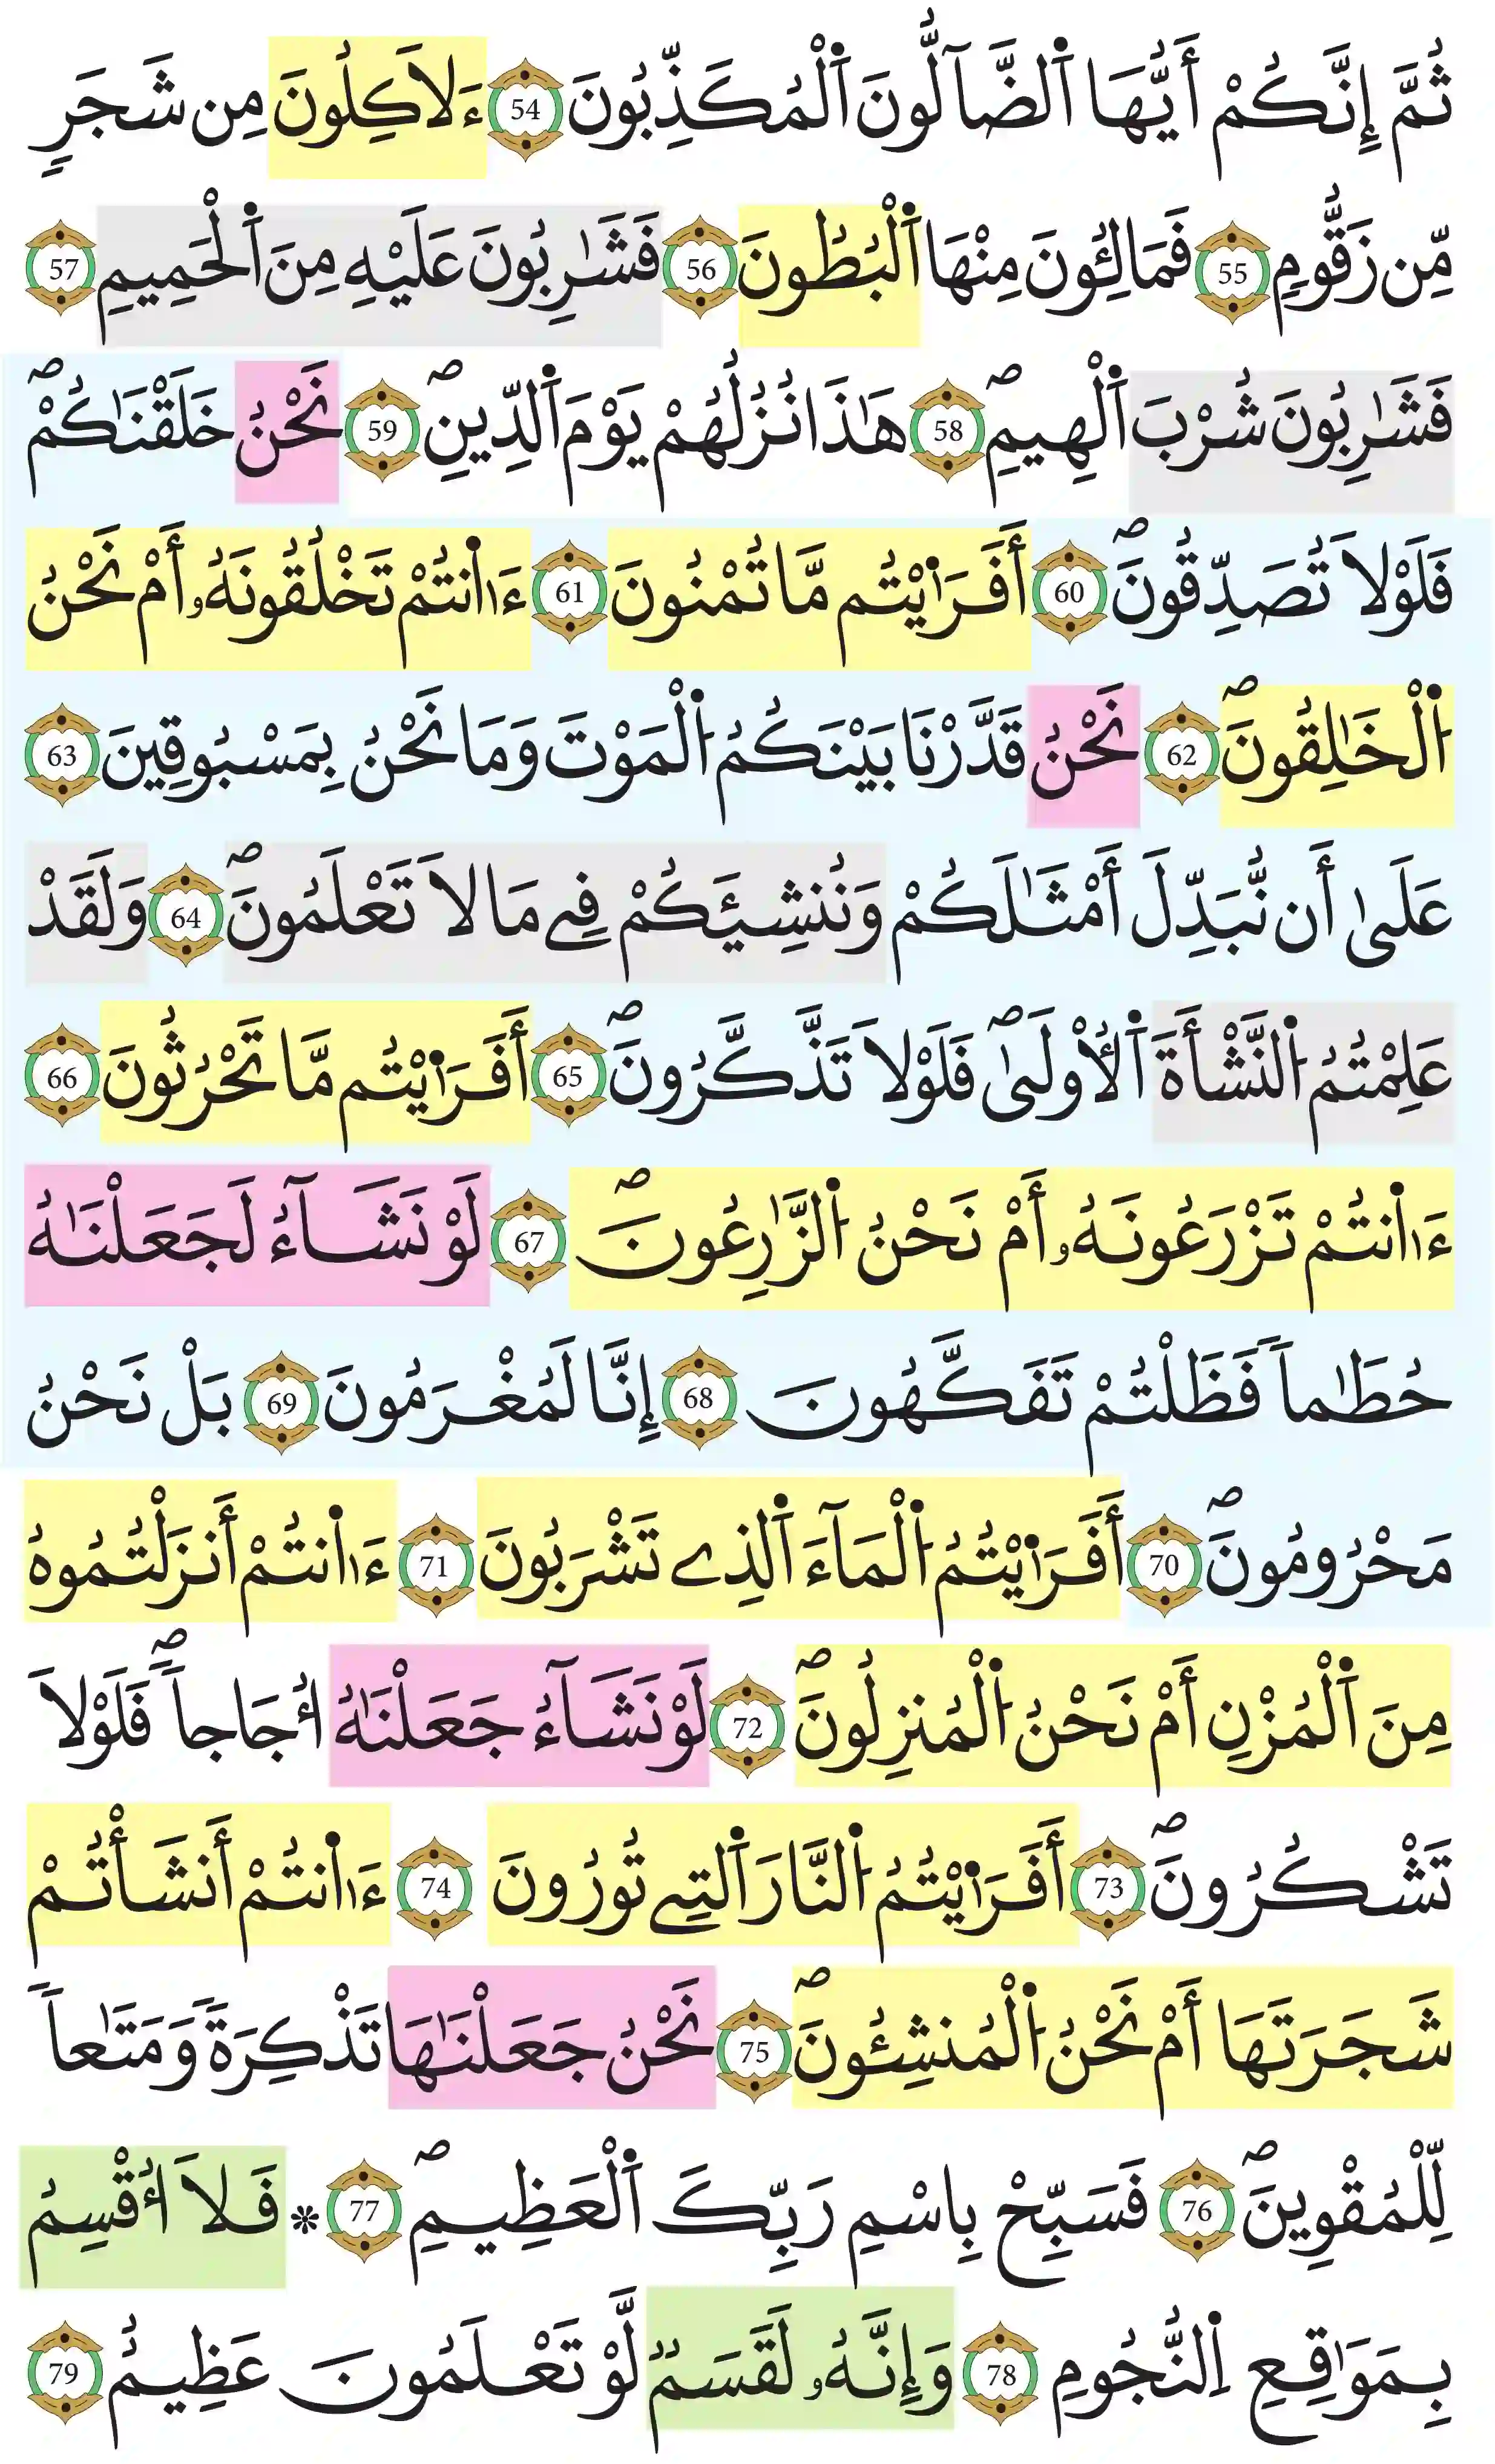 ثُمَّ إِنَّكُمْ أَيُّهَا اَ۬لضَّآلُّونَ اَ۬لْمُكَذِّبُونَ 54 ءَلَاكِلُونَ مِن شَجَرٍ
مِّن زَقُّومٍ 55 فَمَالِـُٔونَ مِنْهَا اَ۬لْبُطُونَ 56 فَشَٰرِبُونَ عَلَيْهِ مِنَ اَ۬لْحَمِيمِ 57
فَشَٰرِبُونَ شُرْبَ اَ۬لْهِيمِۖ 58 هَٰذَا نُزُلُهُمْ يَوْمَ اَ۬لدِّينِۖ 59 نَحْنُ خَلَقْنَٰكُمْۖ
فَلَوْلَا تُصَدِّقُونَۖ 60 أَفَرَٰ۬يْتُم مَّا تُمْنُونَ 61 ءَا۬نتُمْ تَخْلُقُونَهُۥ أَمْ نَحْنُ
اُ۬لْخَٰلِقُونَۖ 62 نَحْنُ قَدَّرْنَا بَيْنَكُمُ اُ۬لْمَوْتَ وَمَا نَحْنُ بِمَسْبُوقِينَ 63
عَلَىٰ أَن نُّبَدِّلَ أَمْثَٰلَكُمْ وَنُنشِئَكُمْ فِے مَا لَا تَعْلَمُونَۖ 64 وَلَقَدْ
عَلِمْتُمُ اُ۬لنَّشْأَةَ اَ۬لُاولَىٰۖ فَلَوْلَا تَذَّكَّرُونَۖ 65 أَفَرَٰ۬يْتُم مَّا تَحْرُثُونَ 66
ءَا۬نتُمْ تَزْرَعُونَهُۥ أَمْ نَحْنُ اُ۬لزَّٰرِعُونَۖ 67 لَوْ نَشَآءُ لَجَعَلْنَٰهُ
حُطَٰماٗ فَظَلْتُمْ تَفَكَّهُونَ 68 إِنَّا لَمُغْرَمُونَ 69 بَلْ نَحْنُ
مَحْرُومُونَۖ 70 أَفَرَٰ۬يْتُمُ اُ۬لْمَآءَ اَ۬لذِے تَشْرَبُونَ 71 ءَا۬نتُمْ أَنزَلْتُمُوهُ
مِنَ اَ۬لْمُزْنِ أَمْ نَحْنُ اُ۬لْمُنزِلُونَۖ 72 لَوْ نَشَآءُ جَعَلْنَٰهُ أُجَاجاٗۖ فَلَوْلَا
تَشْكُرُونَۖ 73 أَفَرَٰ۬يْتُمُ اُ۬لنَّارَ اَ۬لتِے تُورُونَ 74 ءَا۬نتُمْ أَنشَأْتُمْ
شَجَرَتَهَا أَمْ نَحْنُ اُ۬لْمُنشِـُٔونَۖ 75 نَحْنُ جَعَلْنَٰهَا تَذْكِرَةٗ وَمَتَٰعاٗ
لِّلْمُقْوِينَۖ 76 فَسَبِّحْ بِاسْمِ رَبِّكَ اَ۬لْعَظِيمِۖ 77 * فَلَا أُقْسِمُ
بِمَوَٰقِعِ اِ۬لنُّجُومِ 78 وَإِنَّهُۥ لَقَسَمٞ لَّوْ تَعْلَمُونَ عَظِيمٌ 79